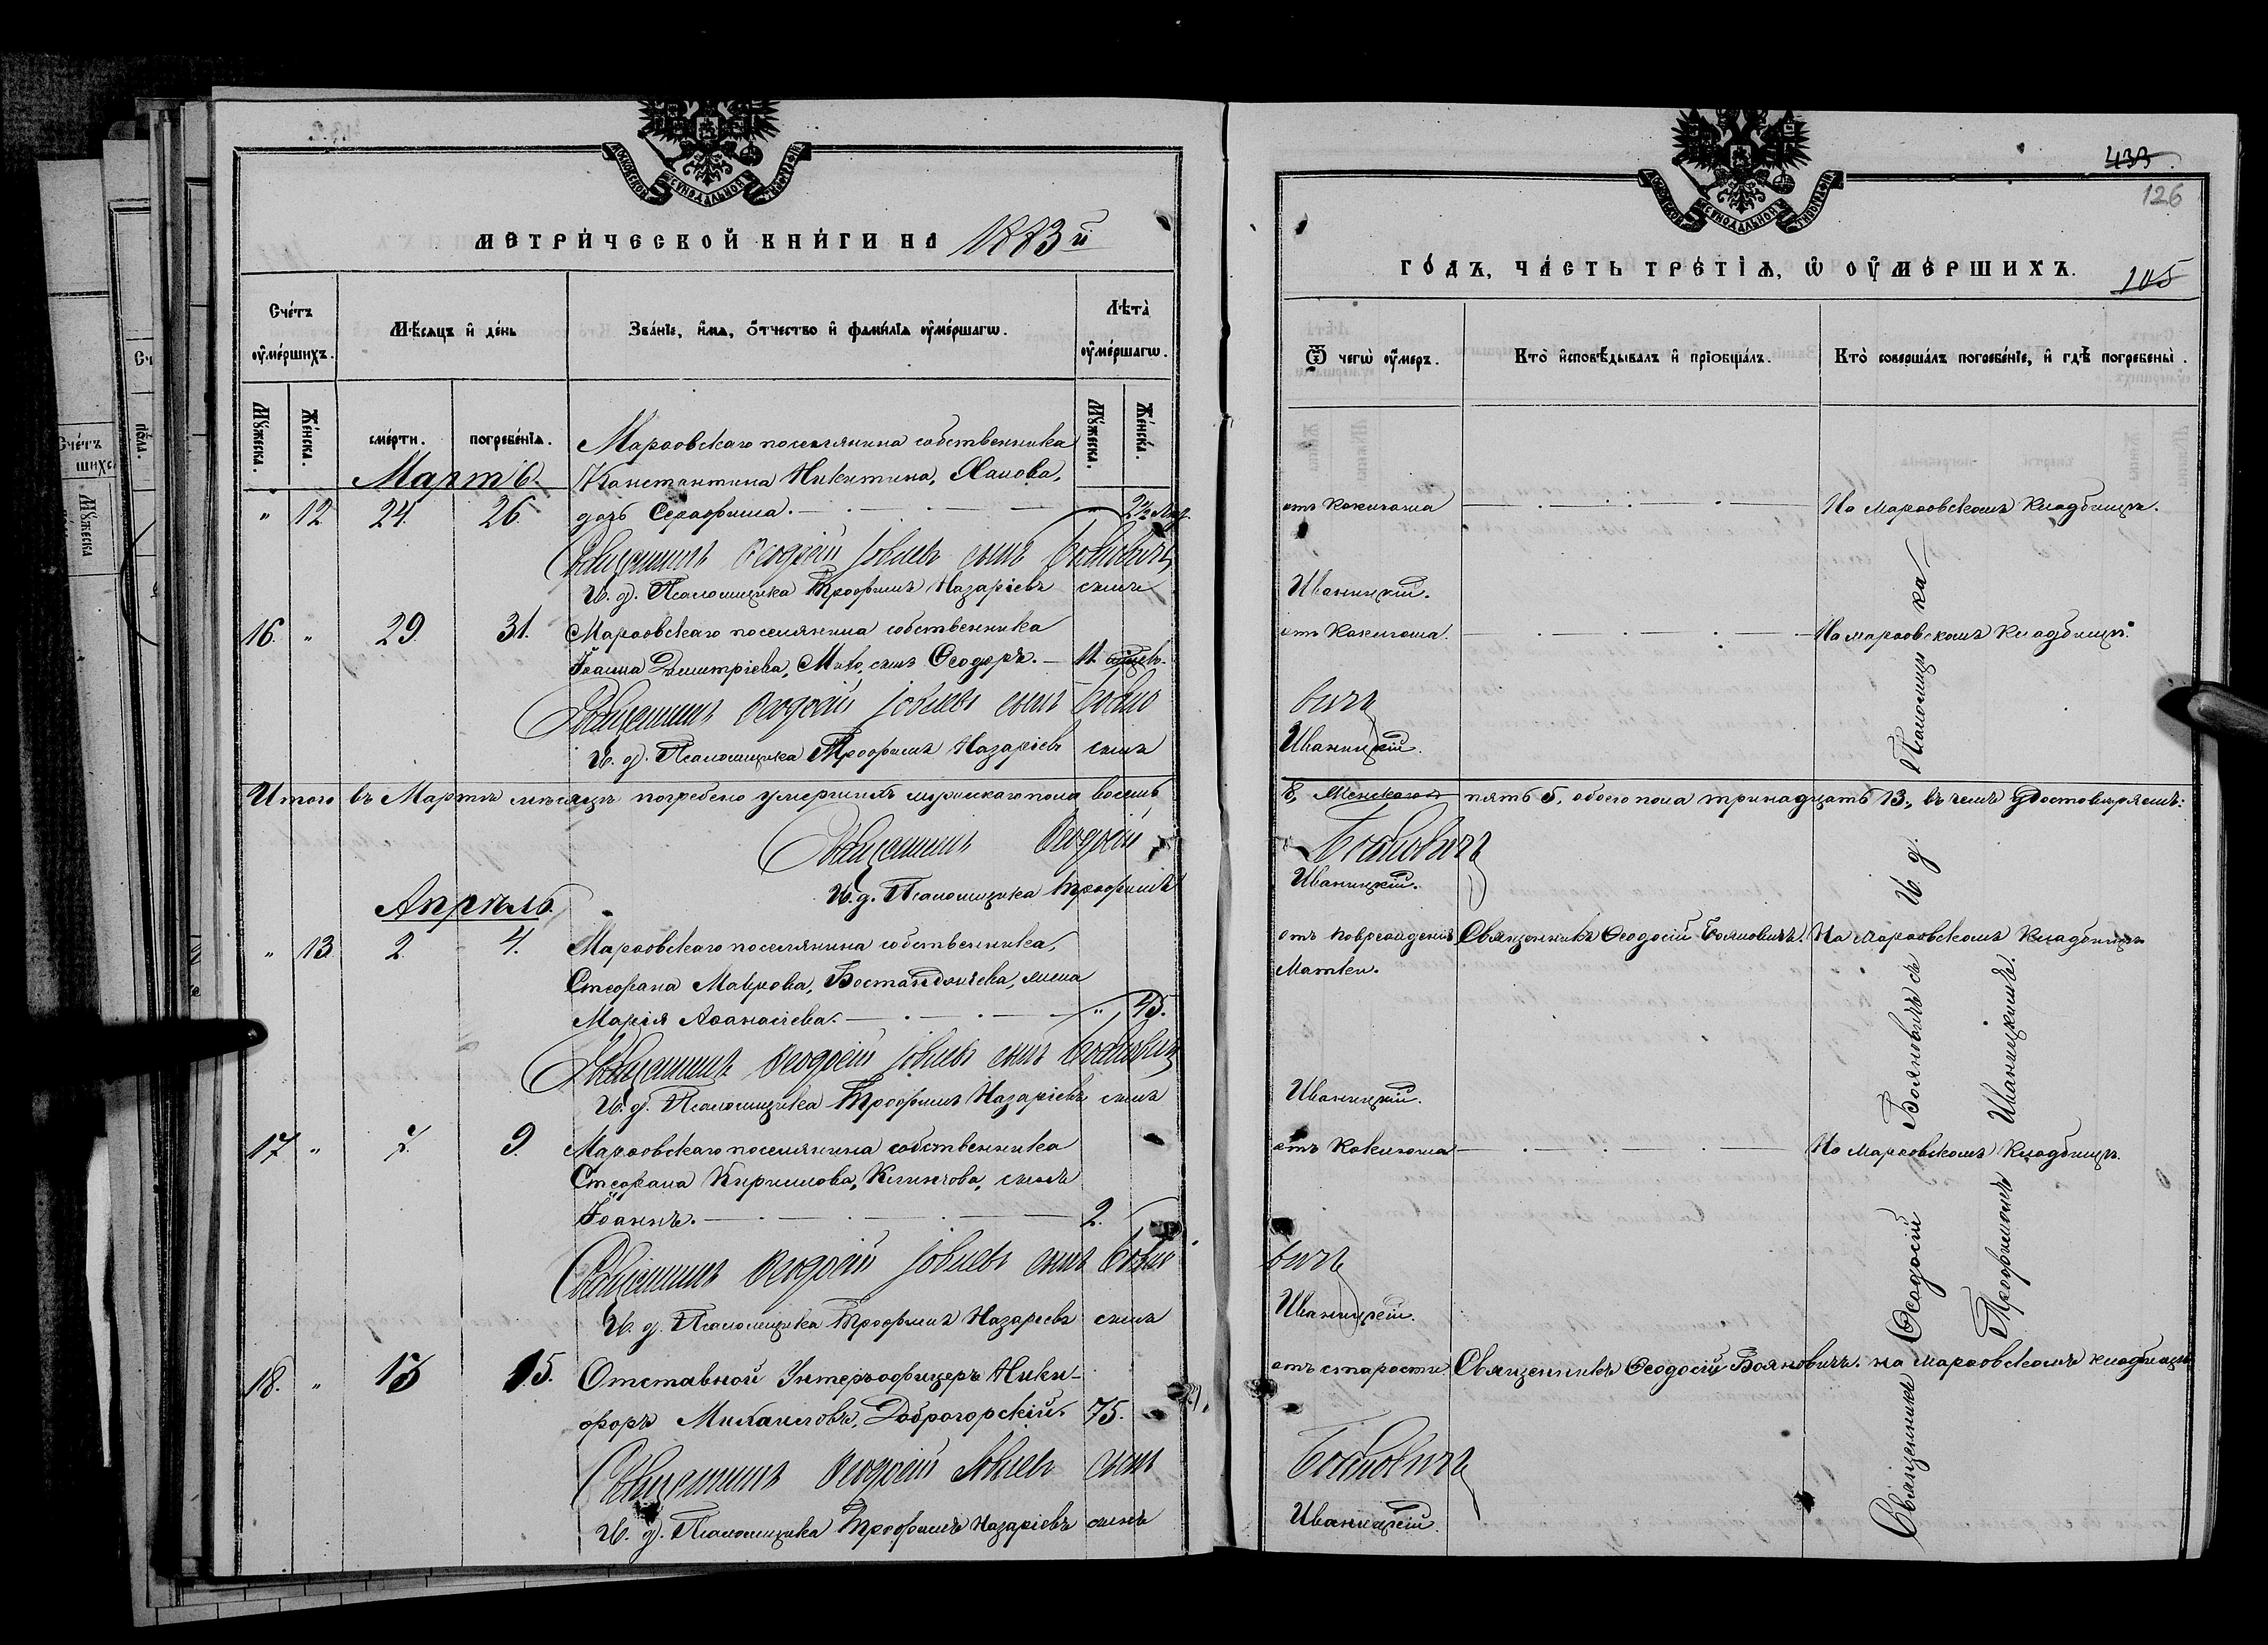 МЕТРИ́ЧЕСКОЙ КНИ́ГИ НА 1883й
Сче́тъ оу҆ме́ршихъ.
Мѣ́сяцъ и҆ де́нь
Зва́нїе, и҆́мя, о҆́тчество и҆ фами́лїя оу҆ме́ршагѡ.
Лѣ́та оу҆ме́ршагѡ.
Му́жеска.
Же́нска.
сме́рти.
погребе́нїя.
Му́жеска.
Же́нска.
Мартъ.
Марфовскаго поселянина собственника
Константина Никитина,
" 12. 24. 26. дочь Серафима.
Священникъ Ѳеодосій Іовлевъ сынъ Бояновичъ
И. д. Псаломщика Трофимъ Назаріевъ сынъ
16. " 29. 31. Марфовскаго поселянина собственника
Іоанна Димитріева, сынъ Ѳеодоръ. — 11.
Священникъ Ѳеодосій Іовлевъ сынъ Бояно
И. д. Псаломщика Трофимъ Назаріевъ сынъ
Итого въ Мартѣ мѣсяцѣ погребено умершихъ мужескаго пола восемь
Священникъ Ѳеодосій
И. д. Псаломщика Трофимъ
Апрѣль.
" 13. 2. 4. Марфовскаго поселянина собственника,
Стефана Маврова, жена
Марія Аѳанасіева. — " 45.
Священникъ Ѳеодосій Іовлевъ сынъ Бояновичъ
И. д. Псаломщика Трофимъ Назаріевъ сынъ
17. " 7. 9. Марфовскаго поселянина собственника
Стефана Кириллова, сынъ
Іоаннъ. — 2.
Священникъ Ѳеодосій Іовлевъ сынъ Бояно
И. д. Псаломщика Трофимъ Назаріевъ сынъ
18. " 13 15. Отставной Унтеръофицеръ Ники-
форъ Михаиловъ, Доброгорскій. 75.
Священникъ Ѳеодосій Іовлевъ сынъ
И. д. Псаломщика Трофимъ Назаріевъ сынъ
433
126
ГО́ДЪ, ЧА́СТЬ ТРЕ́ТІЯ, Ѡ҆ ОУ҆МЕ́РШИХЪ.
105
Ѿ чегѡ̀ оу҆́меръ.
Кто̀ и҆сповѣ́дывалъ и҆ прїобща́лъ.
Кто̀ соверша́лъ погребе́нїе, и҆ гдѣ̀ погребены̀.
отъ Коклюша — На Марфовскомъ Кладбищѣ.
Иваницкій.
отъ Коклюша. — На марфовскомъ Кладбищѣ.
вичъ
Иваницкій.
8, Женскаго пять 5, обоего пола тринадцать 13., въ чемъ удостовѣряемъ:
Бояновичъ
Иваницкій.
отъ поврежденія Священникъ Ѳеодосій Бояновичъ. На Марфовскомъ Кладбищѣ
Матки.
Иваницкій.
отъ Коклюша — На Марфовскомъ Кладбищѣ.
вичъ
Иваницкій.
отъ старости. Священникъ Ѳеодосій Бояновичъ. на Марфовскомъ кладбищѣ
Бояновичъ
Иваницкій.
Священникъ Ѳеодосій Бояновичъ съ И. д. Псаломщика
Трофимомъ Иваницкимъ.